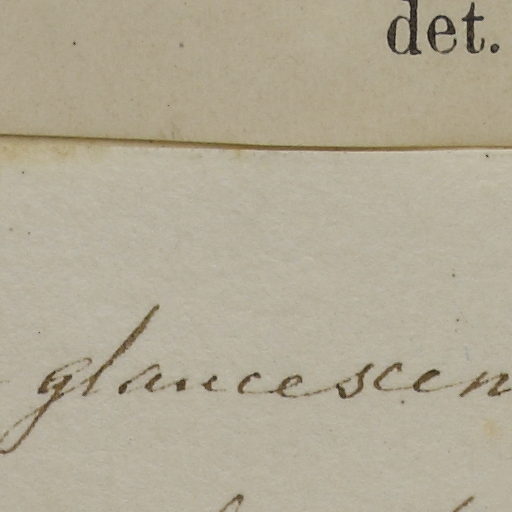 det.
glaucescen